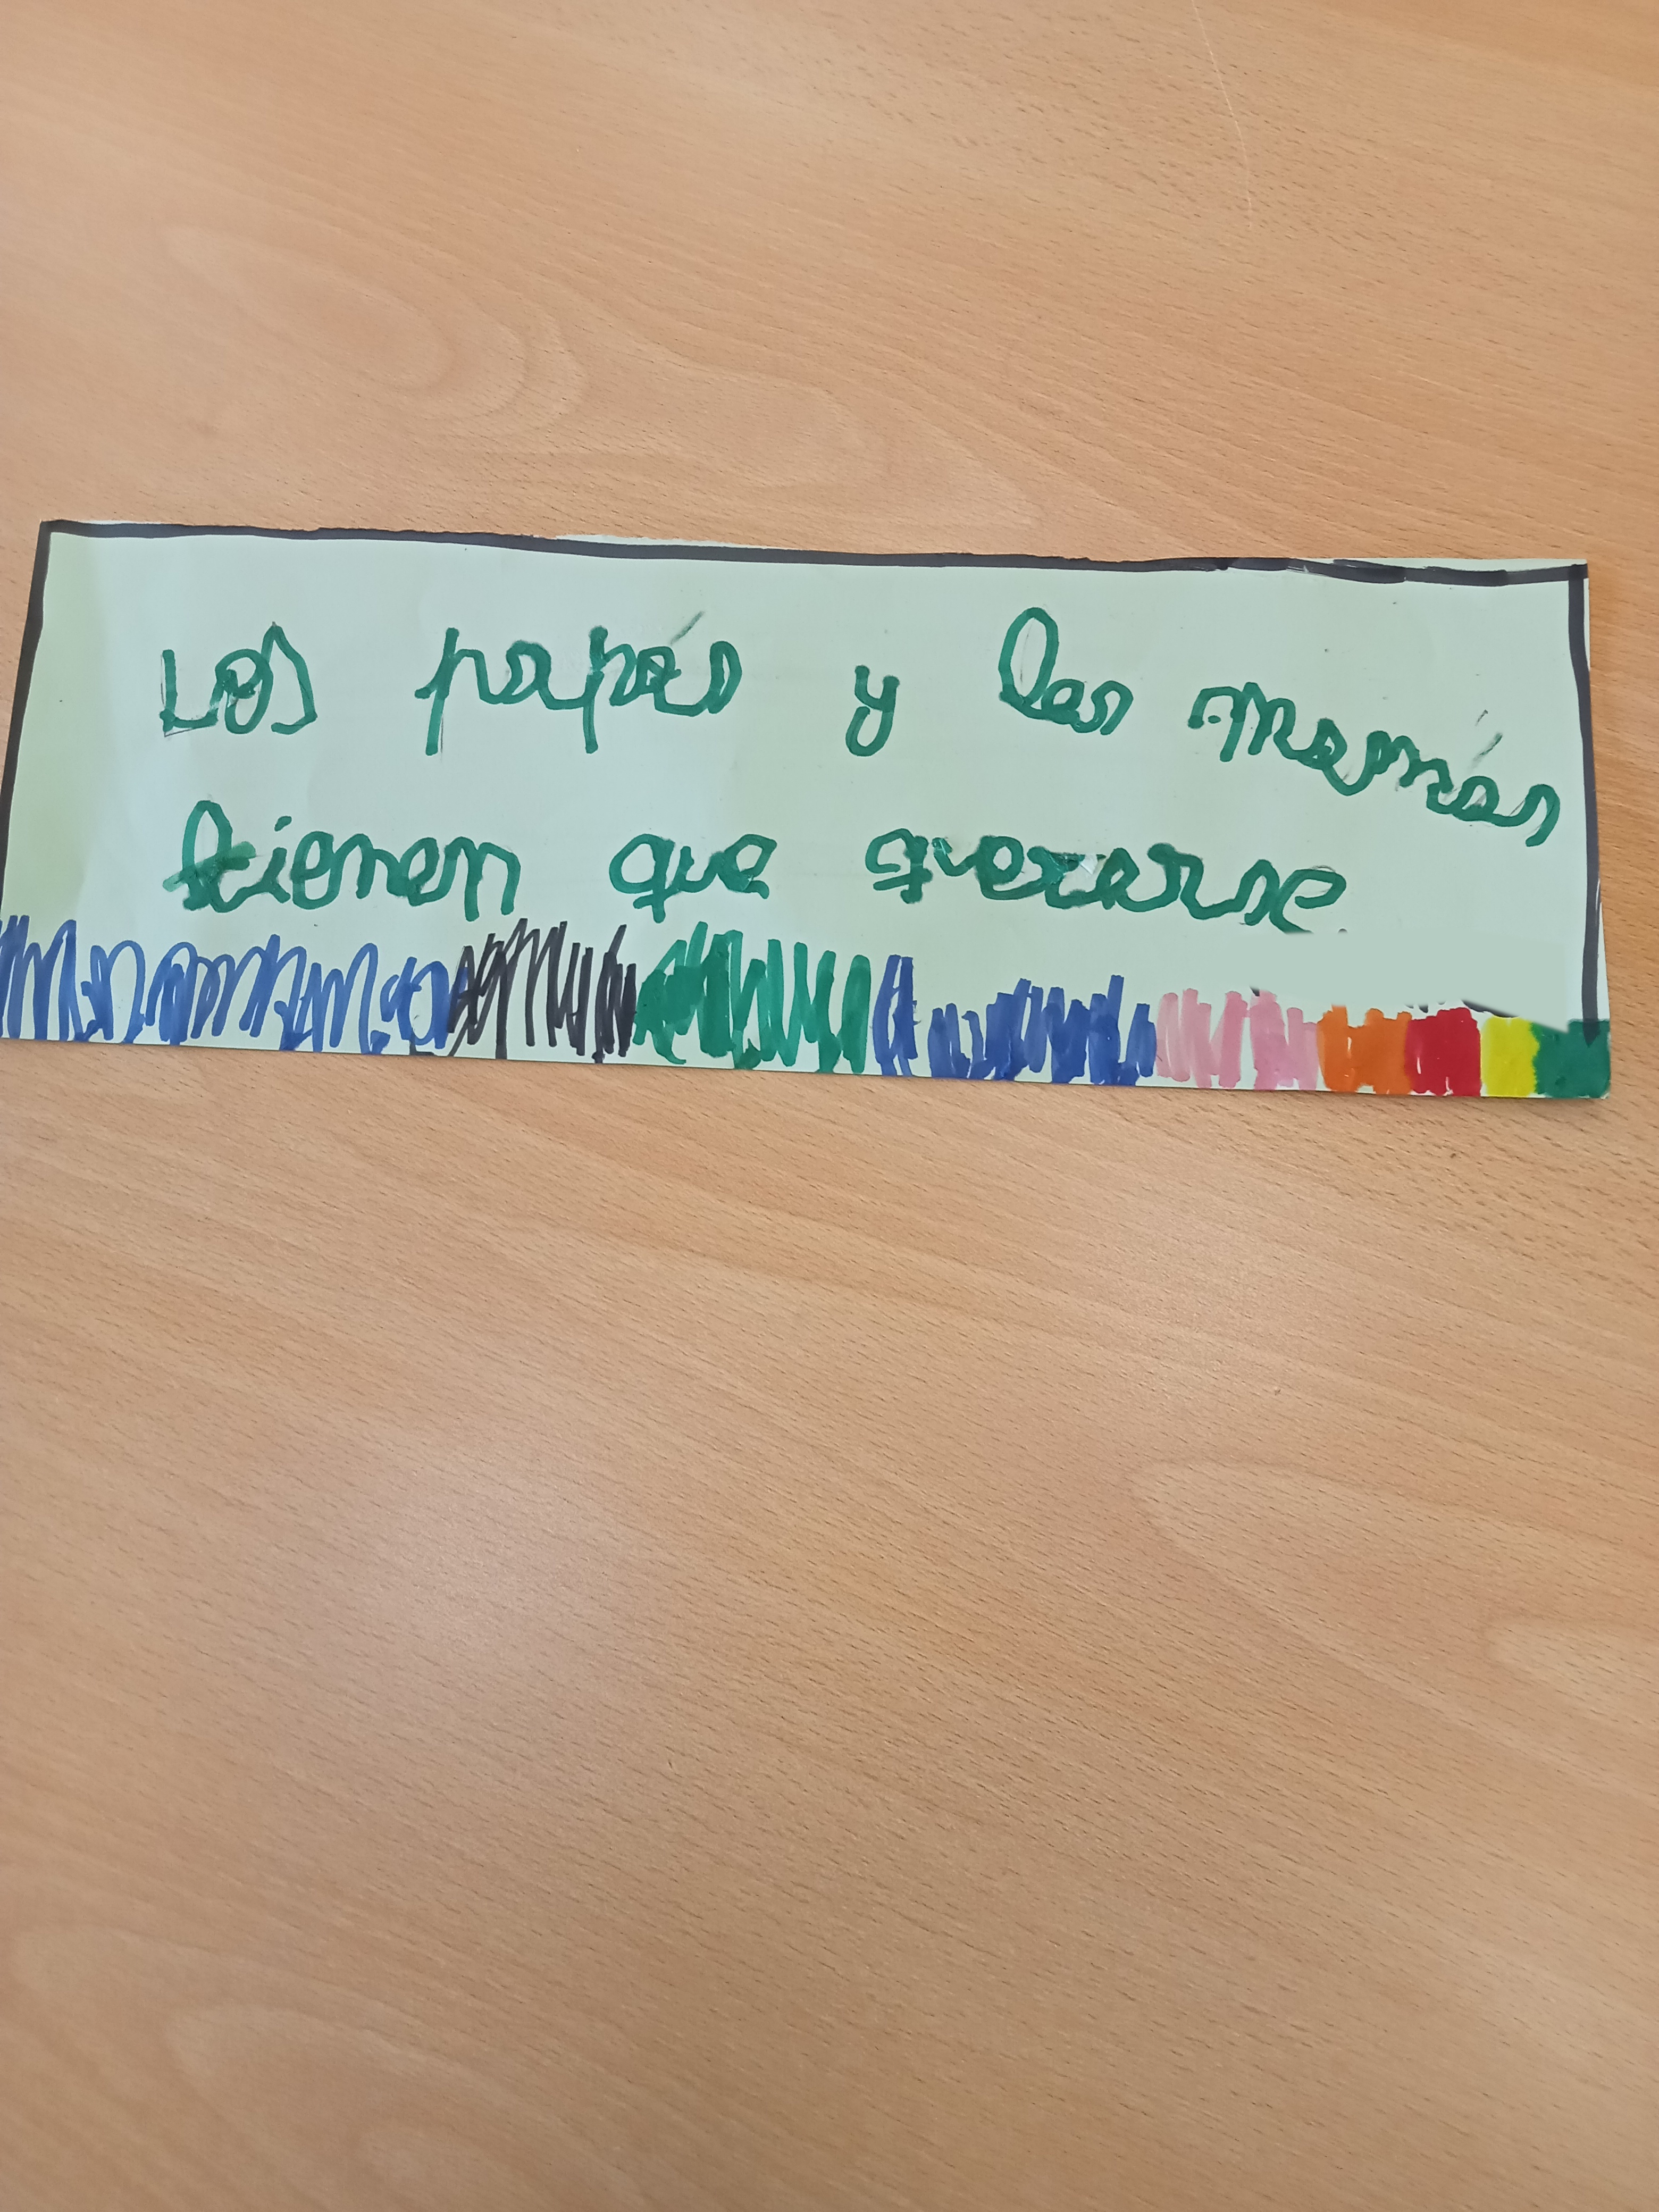 Los papás y las mamás
tienen que quererse.